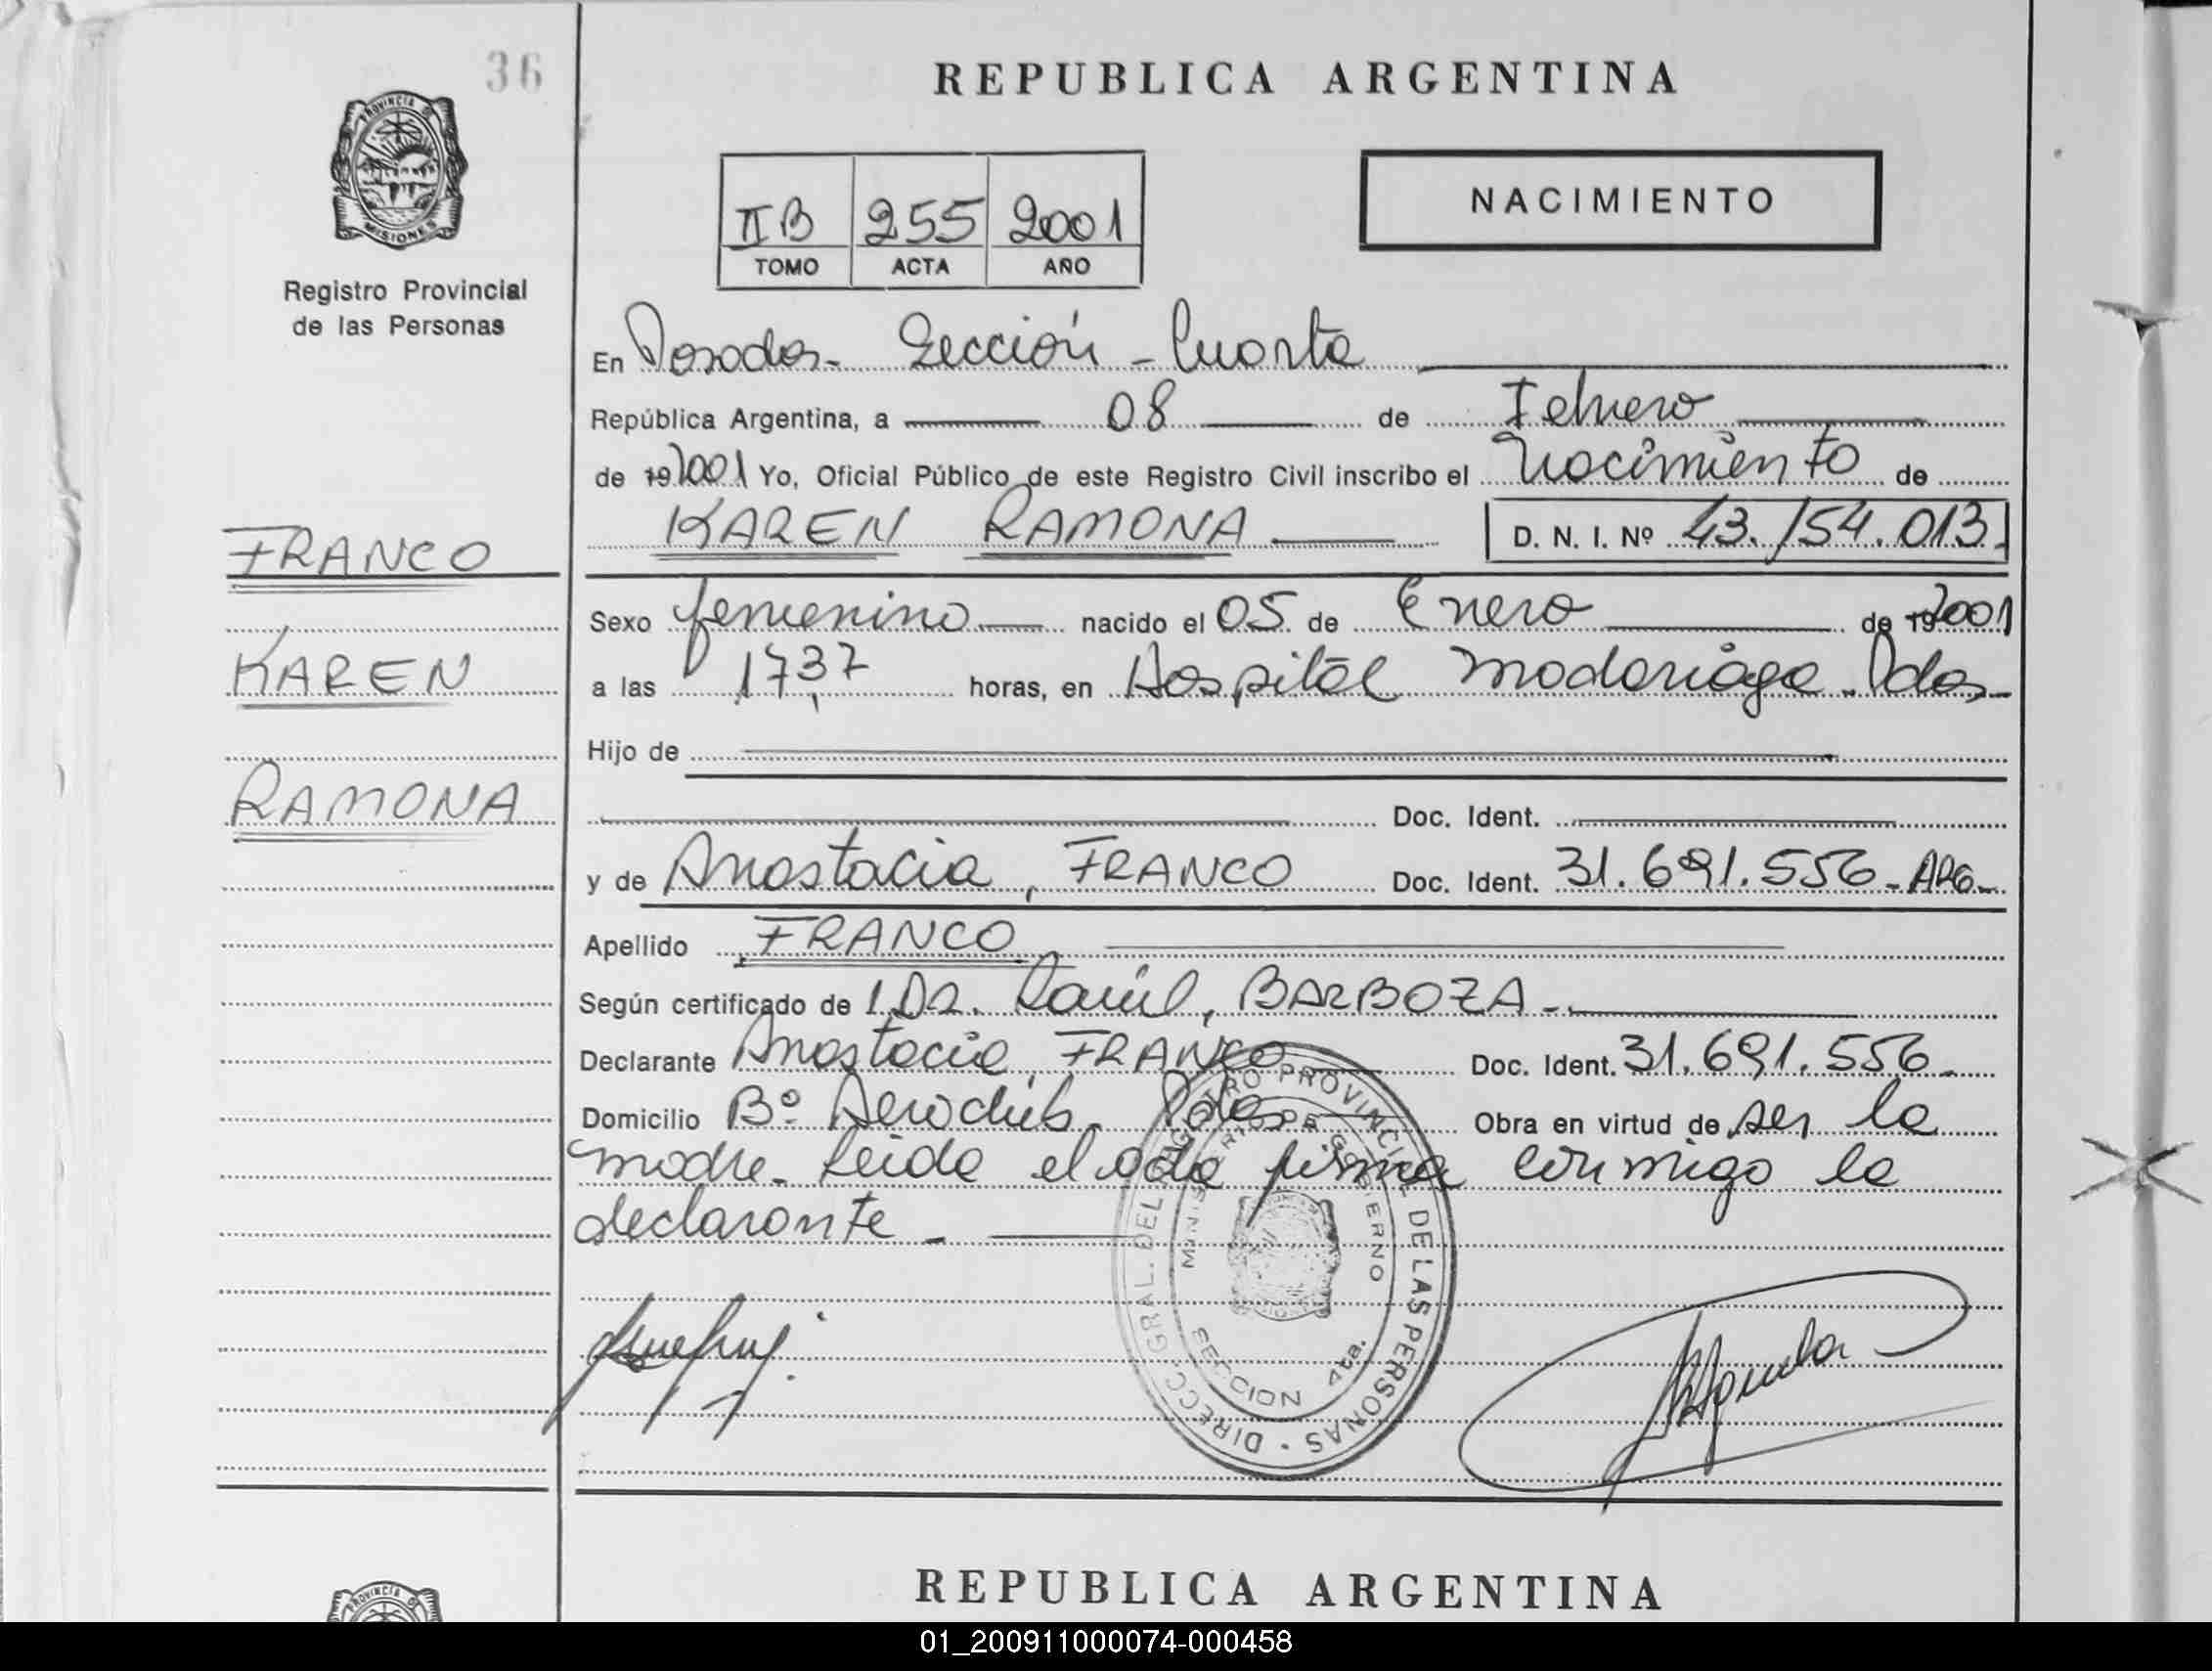 36
PROVINCIA D
MISIONES
Registro Provincial
de las Personas
FRANCO
KAREN
RAMONA
REPUBLICA ARGENTINA
II B 255 2001
TOMO ACTA AÑO
NACIMIENTO
En Posadas - Sección - Cuarta
República Argentina, a 08 de Febrero
de 192001 Yo, Oficial Público de este Registro Civil inscribo el Nacimiento de
KAREN RAMONA D. N. I. Nº 43.154.013
Sexo femenino nacido el 05 de Enero de 192001
a las 17,37 horas, en Hospital Madariaga - Pdas -
Hijo de
Doc. Ident.
y de Anastacia, FRANCO Doc. Ident. 31.691.556 - ARG -
Apellido FRANCO
Según certificado de 1. Dr. Raúl, BARBOZA -
Declarante Anastacia, FRANCO Doc. Ident. 31.691.556 -
Domicilio Bº Aeroclub - Pdas Obra en virtud de ser la
madre - Leida el acta firma conmigo la
declarante -
DIRECC. GRAL. DEL REGISTRO PROVINCIAL DE LAS PERSONAS
MINISTERIO DE GOBIERNO
SECCION 4ta.
REPUBLICA ARGENTINA
PROVINCIA
01_200911000074-000458